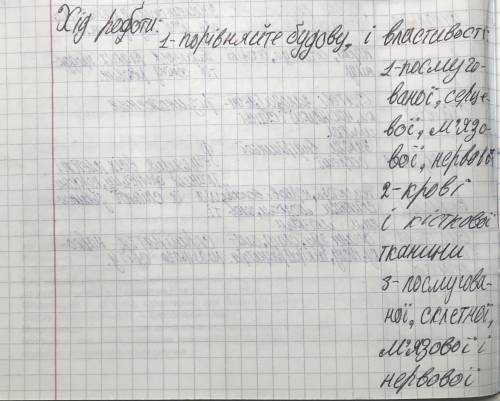 Хід роботи:
1-порівняйте будову, і властивості
1-послуго-
ваної, серце-
вої, м'язо-
вої, нервової
2-крові
і кісткової
тканини
3-послугова-
ної, склетної,
м'язової і
нервової